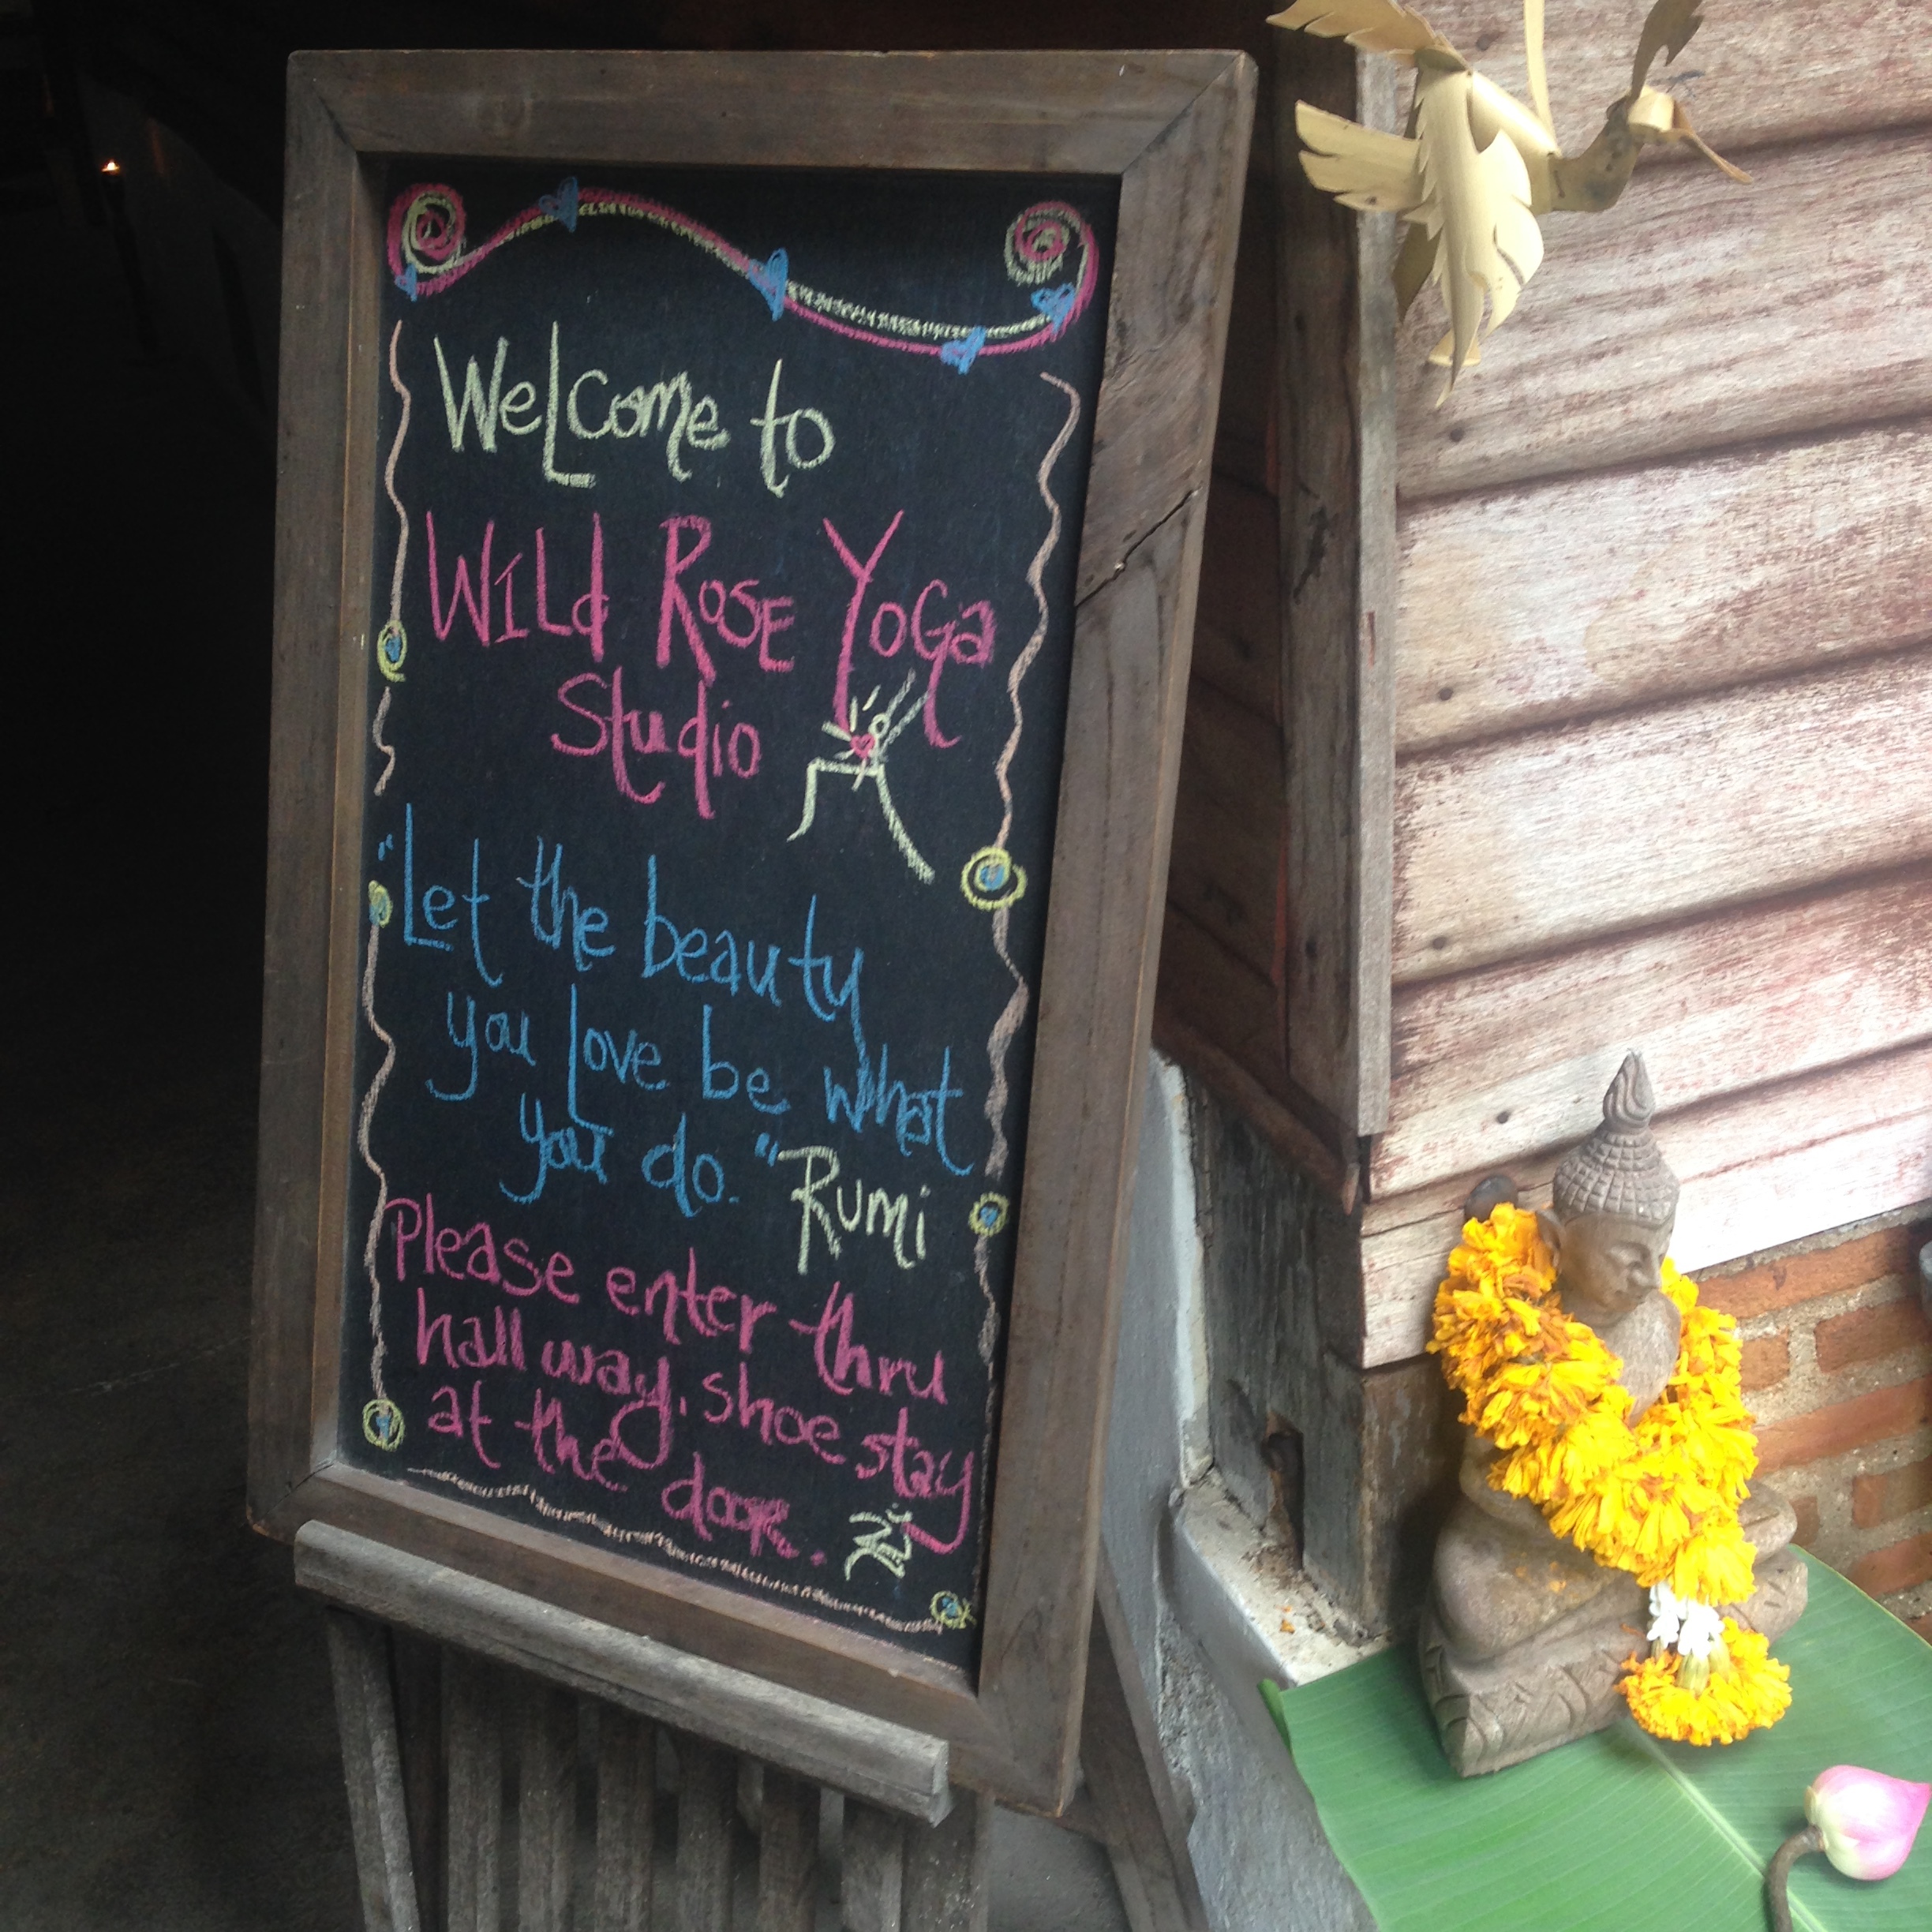 Welcome to
WILd ROSE YOGa
Studio
"Let the beauty
you love be what
you do." Rumi
Please enter thru
hall way, shoe stay
at the door.